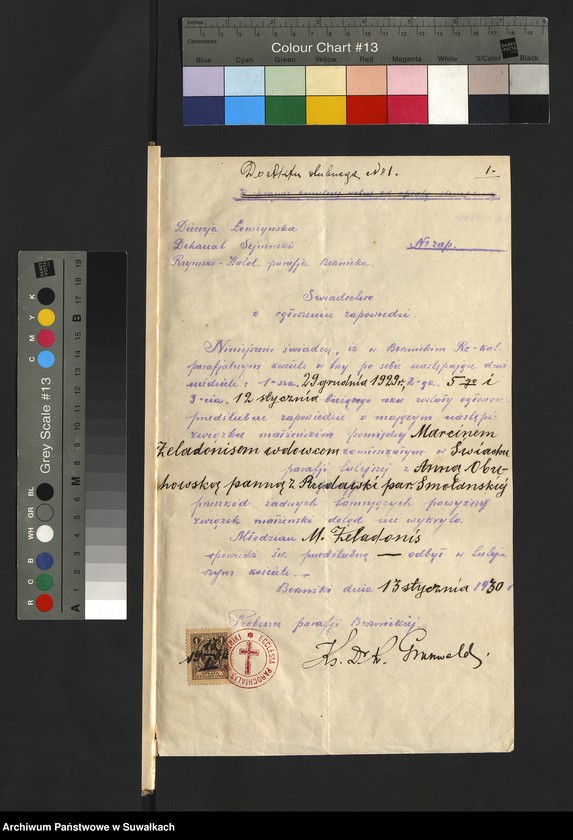 Inches 1 2 3 4 5 6 7 8
Centimetres 1 2 3 4 5 6 7 8 9 10 11 12 13 14 15 16 17 18 19
Colour Chart #13
Blue Cyan Green Yellow Red Magenta White 3/Color Black
Grey Scale #13
R G B WH GR BL C M Y K
A 1 2 3 4 5 6 M 8 9 10 11 12 13 14 15 B 17 18 19
Do Aktu ślubnego No 1.
1.-
Diecezja Łomżyńska
Dekanat Sejneński
No zap.
Rzymsko-Katol. parafja Berżnicka
Świadectwo
o ogłoszeniu zapowiedzi
Niniejszem świadczę, iż w Berżnickim Rz-kat.
parafjalnym kościele w trzy po sobie następujące dni
niedziele: 1-sza 29 grudnia 1929 r, 2-ga 5-go i
3-cia 12 stycznia bieżącego roku zostały ogłoszone
przedślubne zapowiedzie o mającym nastąpić
związku małżeńskim pomiędzy Marcinem
Żeladonisem wdowcem zamieszkałym w
parafji tutejszej z Anną Obu-
howską panną z par. Smolańskiej
przeszkód żadnych tamujących powyższy
związek małżeński dotąd nie wykryto.
Młodzian M. Żeladonis
spowiedź św. przedślubną — odbył w tutej-
szym kościele.-
Berżniki dnia 13 stycznia 1930 r
Proboszcz parafji Berżnickiej
Ks. Dr. Grunwald
ECCLESIA PAROCHIALIS
Archiwum Państwowe w Suwałkach